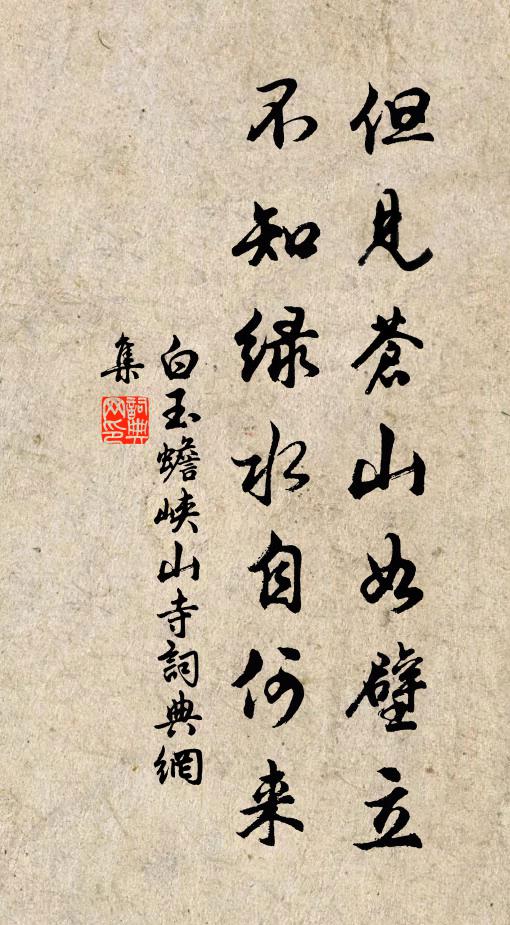 但见蒼山如壁立
不知绿水自何来
白玉蟾峡山寺詞典網
集
詞典
网印